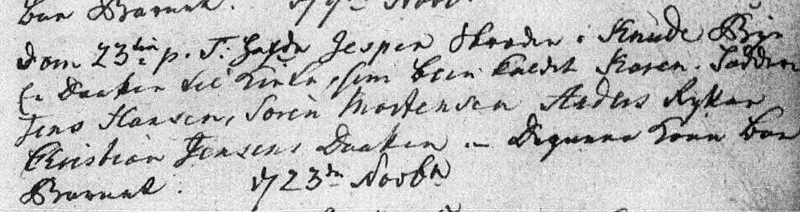 bar Barnet. d 9de Novb.
Dom 23tia p. T: hafde Jesper Skræder i Knude Bye
En Daatter til Kirke, som blev kaldt Karen. Fadderne
Jens Hansen, Søren Mortensen Anders
Christian Jensens Daatter. Kone bar
Barnet. d 23de Novbr